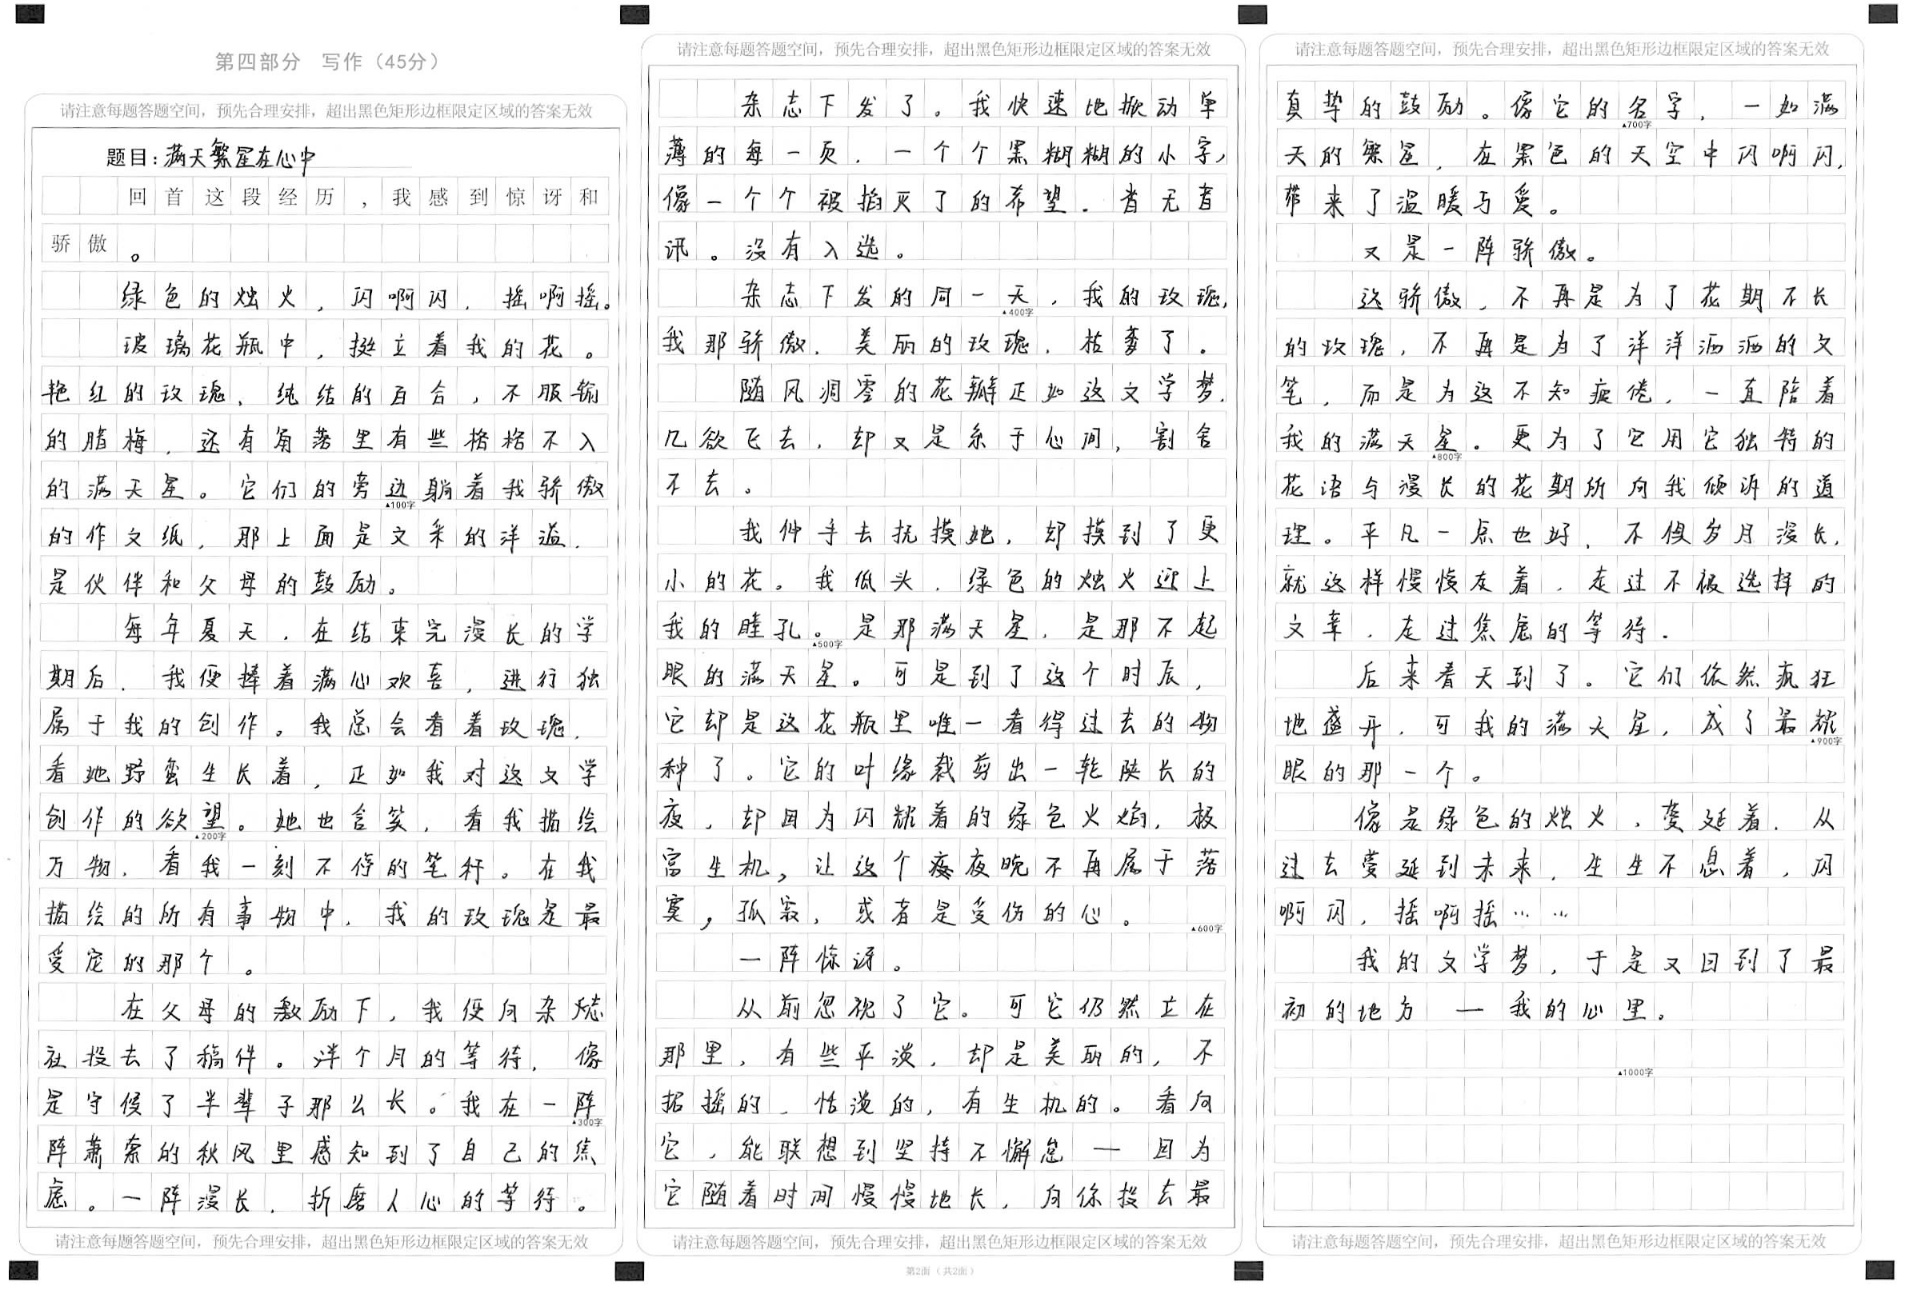 第四部分 写作（45分）
请注意每题答题空间，预先合理安排，超出黑色矩形边框限定区域的答案无效
题目：满天繁星在心中
回首这段经历，我感到惊讶和
骄傲。
绿色的烛火，闪啊闪，摇啊摇。
玻璃花瓶中，挺立着我的花。
艳红的玫瑰、纯结的百合，不服输
的腊梅，还有角落里有些格格不入
的满天星。它们的旁边躺着我骄傲
▲100字
的作文纸，那上面是文采的洋溢，
是伙伴和父母的鼓励。
每年夏天，在结束完漫长的学
期后，我便捧着满心欢喜，进行独
属于我的创作。我总会看着玫瑰，
看她野蛮生长着，正如我对这文学
创作的欲望。她也含笑，看我描绘
▲200字
万物，看我一刻不停的笔杆。在我
描绘的所有事物中，我的玫瑰是最
受宠的那个。
在父母的激励下，我便向杂志
社投去了稿件。半个月的等待，像
是守候了半辈子那么长。我在一阵
▲300字
阵萧索的秋风里感知到了自己的焦
虑。一阵漫长，折磨人心的等待。
请注意每题答题空间，预先合理安排，超出黑色矩形边框限定区域的答案无效
请注意每题答题空间，预先合理安排，超出黑色矩形边框限定区域的答案无效
杂志下发了。我快速地掀动单
薄的每一页，一个个黑糊糊的小字，
像一个个被掐灭了的希望。杳无音
讯。没有入选。
杂志下发的同一天，我的玫瑰，
▲400字
我那骄傲、美丽的玫瑰，枯萎了。
随风凋零的花瓣正如这文学梦，
几欲飞去，却又是系于心间，割舍
不去。
我伸手去抚摸她，却摸到了更
小的花。我低头，绿色的烛火迎上
我的瞳孔。是那满天星，是那不起
▲500字
眼的满天星。可是到了这个时辰，
它却是这花瓶里唯一看得过去的物
种了。它的叶缘裁剪出一轮狭长的
夜，却因为闪耀着的绿色火焰，极
富生机，让这个夜晚不再属于落
寞，孤寂，或者是受伤的心。
▲600字
一阵惊讶。
从前忽视了它。可它仍然立在
那里，有些平淡，却是美丽的，不
招摇的、恬淡的，有生机的。看向
它，能联想到坚持不懈怠——因为
它随着时间慢慢地长，向你投去最
请注意每题答题空间，预先合理安排，超出黑色矩形边框限定区域的答案无效
第2面（共2面）
请注意每题答题空间，预先合理安排，超出黑色矩形边框限定区域的答案无效
真挚的鼓励。像它的名字，一如满
▲700字
天的繁星，在黑色的天空中闪啊闪，
带来了温暖与爱。
又是一阵骄傲。
这骄傲，不再是为了花期不长
的玫瑰，不再是为了洋洋洒洒的文
笔，而是为这不知疲倦，一直陪着
我的满天星。更为了它用它独特的
▲800字
花语与漫长的花期所向我倾诉的道
理。平凡一点也好，不俱岁月漫长，
就这样慢慢友着，走过不被选择的
文章，走过焦虑的等待。
后来春天到了。它们依然疯狂
地盛开，可我的满天星，成了最耀
▲900字
眼的那一个。
像是绿色的烛火，蔓延着，从
过去蔓延到未来，生生不息着，闪
啊闪，摇啊摇……
我的文学梦，于是又回到了最
初的地方——我的心里。
▲1000字
请注意每题答题空间，预先合理安排，超出黑色矩形边框限定区域的答案无效